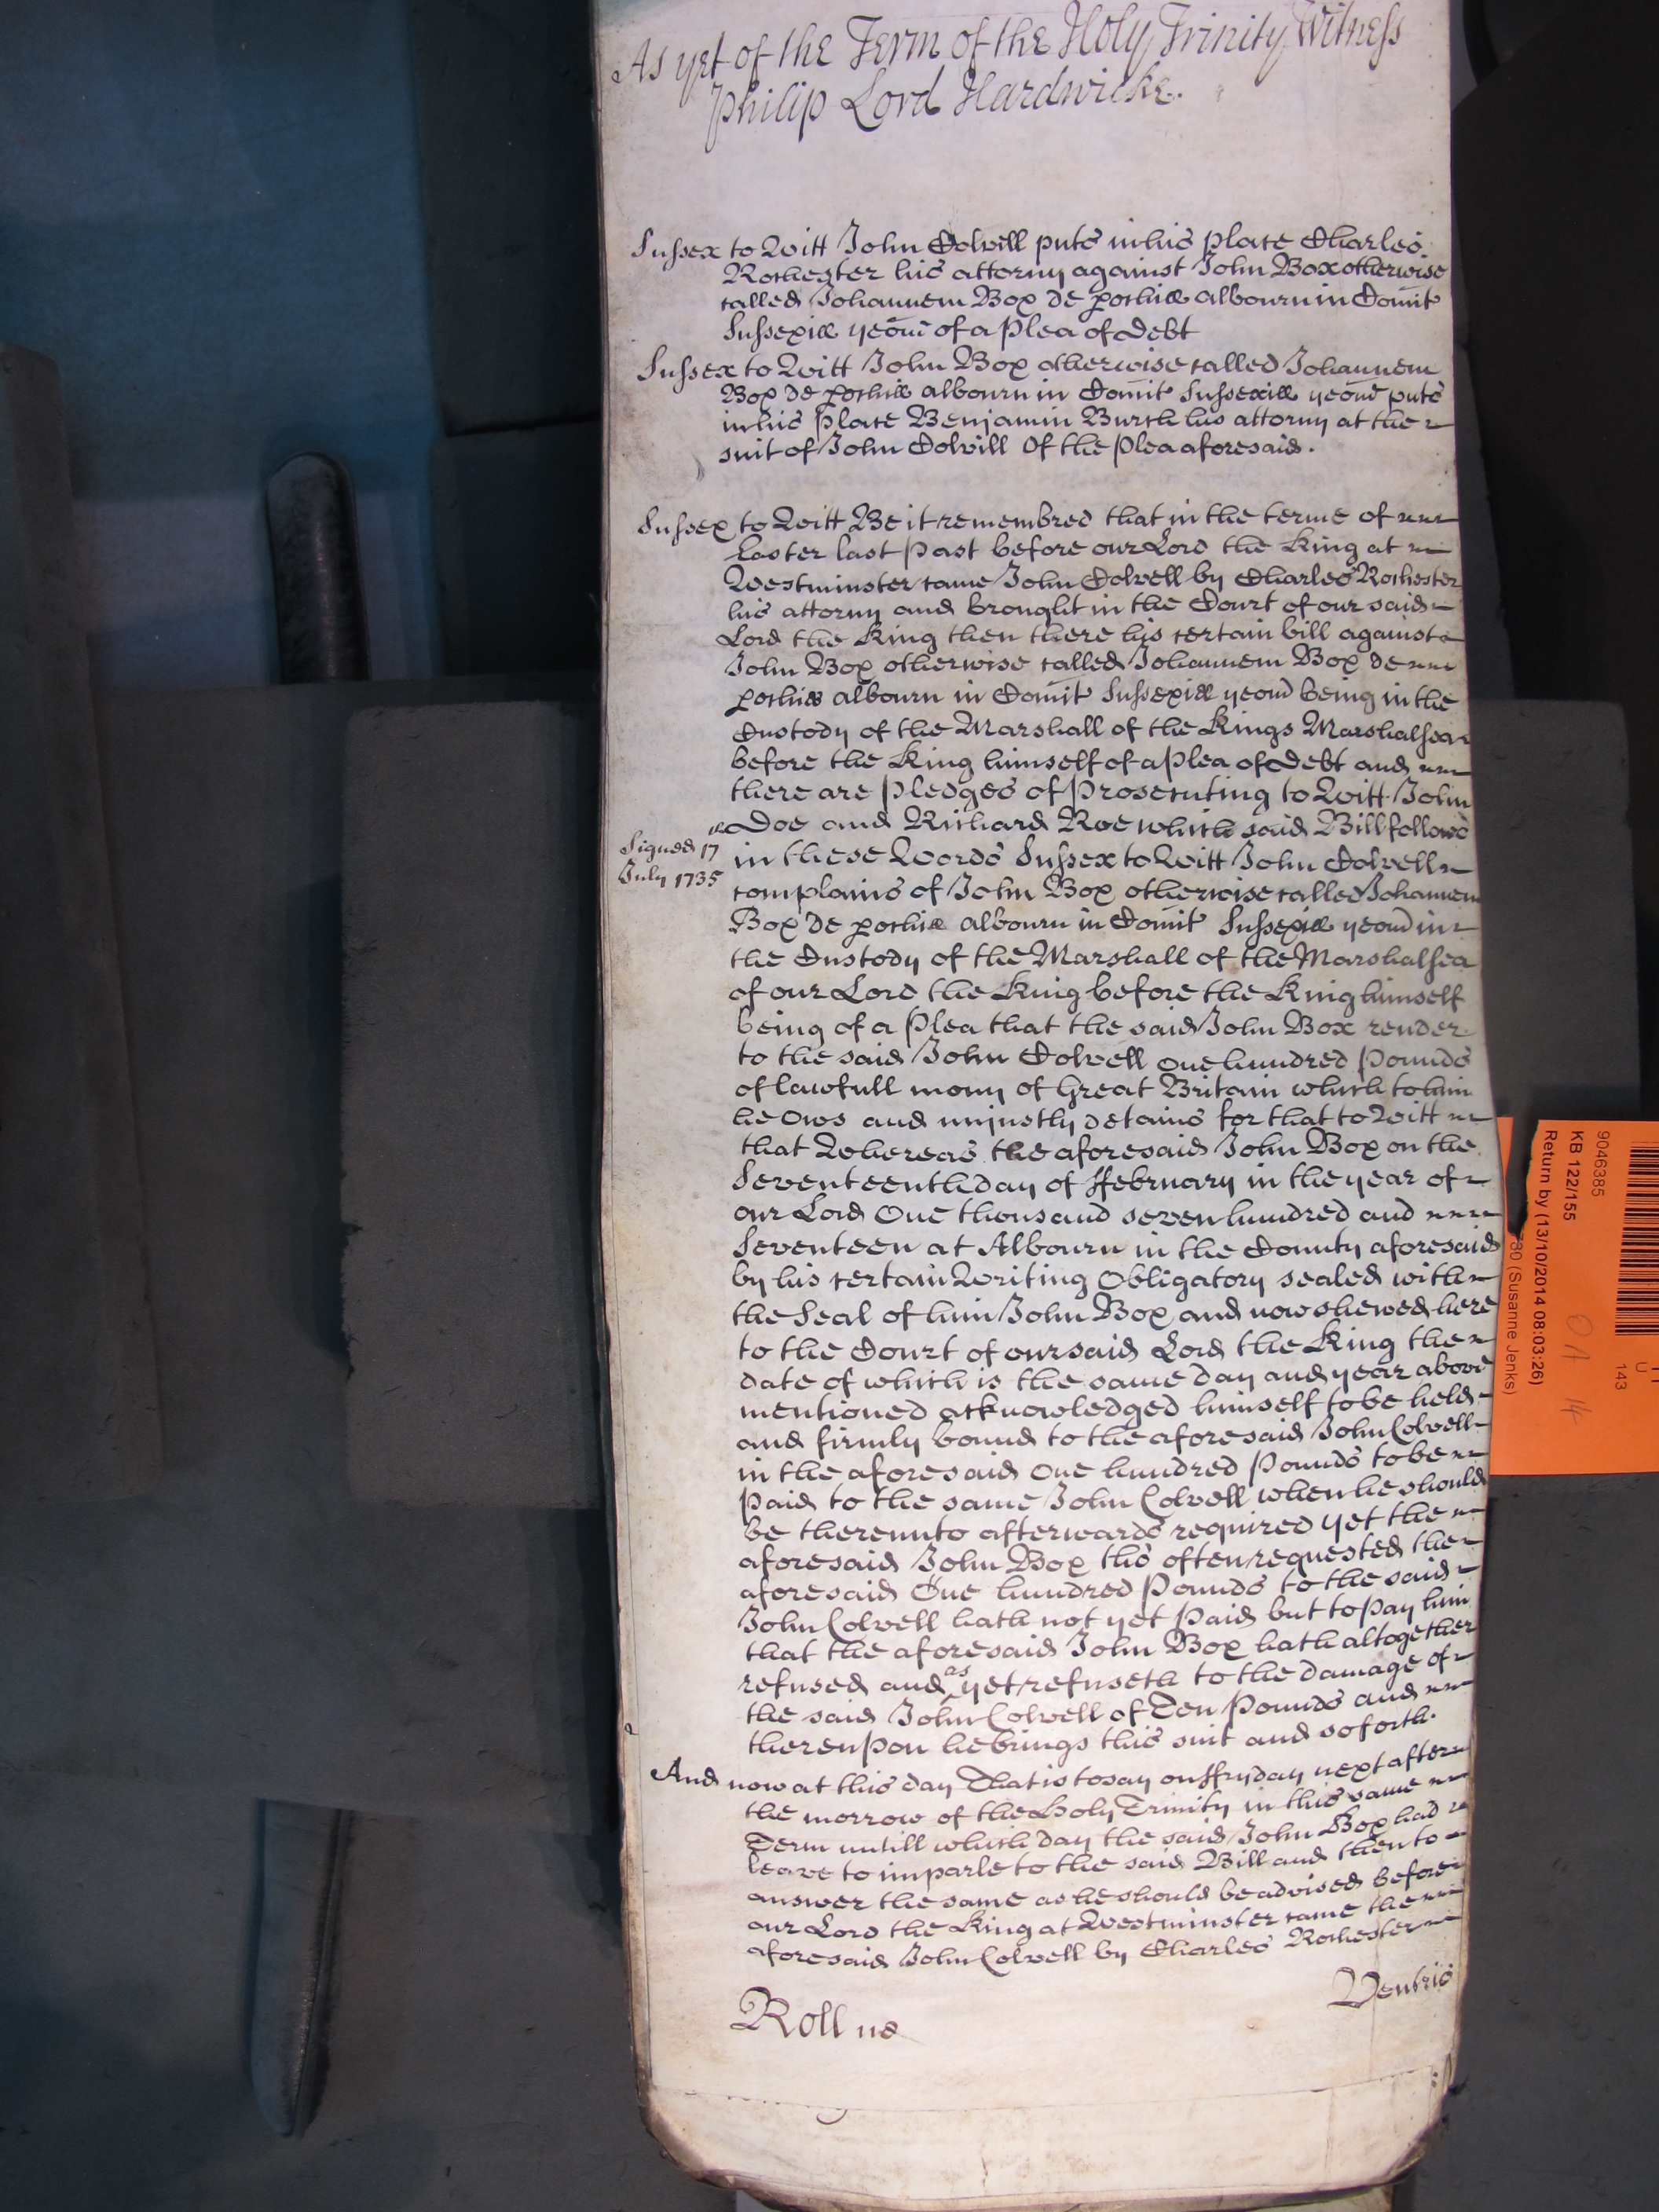 As yet of the Term of the Holy Trinity Witness
Philip Lord Hardwicke.
Sussex to Witt John Colvill puts in his place Charles
Rochester his attorny against John Box otherwise
called Johannem Box de pochia albourn in Comit
Sussexiæ yeom of a Plea of Debt
Sussex to Witt John Box otherwise called Johannem
Box de pochia albourn in Comit Sussexiæ yeom puts
in his place Benjamin Burch his attorny at the
suit of John Colvill Of the Plea aforesaid.
Sussex to Witt Be it remembred that in the terme of
Easter last Past before our Lord the King at
Westminster came John Colvell by Charles Rochester
his attorny and brought in the Court of our said
Lord the King then there his certain bill against
John Box otherwise called Johannem Box de
pochia albourn in Comit Sussexiæ yeom being in the
Custody of the Marshall of the Kings Marshalsea
before the King himself of a Plea of Debt and
there are Pledges of Prosecuting to Witt John
Doe and Richard Roe which said Bill follows
Signed 17th
July 1735
in these Words Sussex to Witt John Colvell
complains of John Box otherwise called Johannem
Box de pochia albourn in Comit Sussexiæ yeom in
the Custody of the Marshall of the Marshalsea
of our Lord the King before the King himself
being of a Plea that the said John Box render
to the said John Colvell one hundred Pounds
of lawfull mony of Great Britain which to him
he Ows and unjustly detains for that to Witt
that Whereas the aforesaid John Box on the
Seventeenth day of ffebruary in the year of
our Lord One thousand seven hundred and
Seventeen at Albourn in the County aforesaid
by his certain Writing Obligatory sealed with
the Seal of him John Box and now shewed here
to the Court of our said Lord the King the
date of which is the same day and year above
mentioned acknowledged himself to be held
and firmly bound to the aforesaid John Colvell
in the aforesaid one hundred Pounds to be
Paid to the same John Colvell when he should
be thereunto afterwards required yet the
aforesaid John Box tho often requested the
aforesaid One hundred Pounds to the said
John Colvell hath not yet Paid but to Pay him
that the aforesaid John Box hath altogether
refused and as yet refuseth to the damage of
the said John Colvell of Ten Pounds and
thereupon he brings this suit and so forth.
And now at this day That is to say on ffryday next after
the morrow of the Holy Trinity in this same
Term untill which day the said John Box had
leave to imparle to the said Bill and then to
answer the same as he should be advised before
our Lord the King at Westminster came the
aforesaid John Colvell by Charles Rochester
Ventris
Roll 118
9046385
KB 122/155
Return by (13/10/2014 08:03:26)
(Susanne Jenks)
143